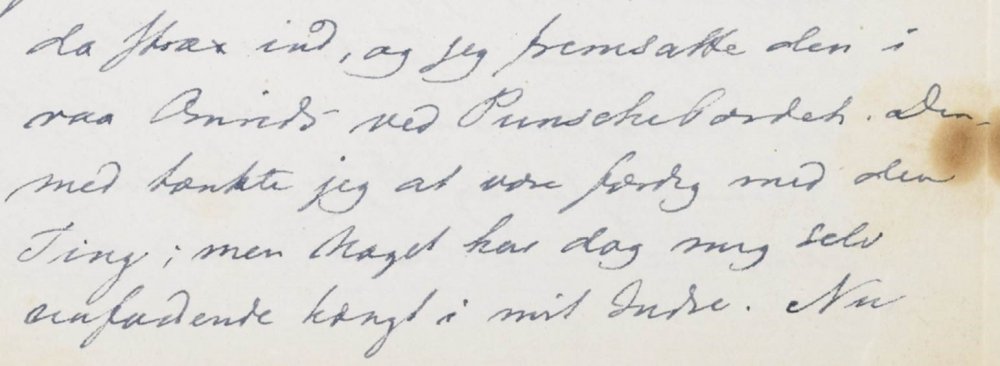 da strax ind, og jeg fremsatte den i
raa Omrids ved Punschebordet. Der-
med tænkte jeg at være færdig med den
Ting; men Noget har dog mig selv
uafvidende hængt i mit Indre. Nu